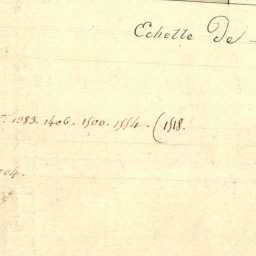 Echelle De
1083. 1406. 1500. 1554. (1518.
04.